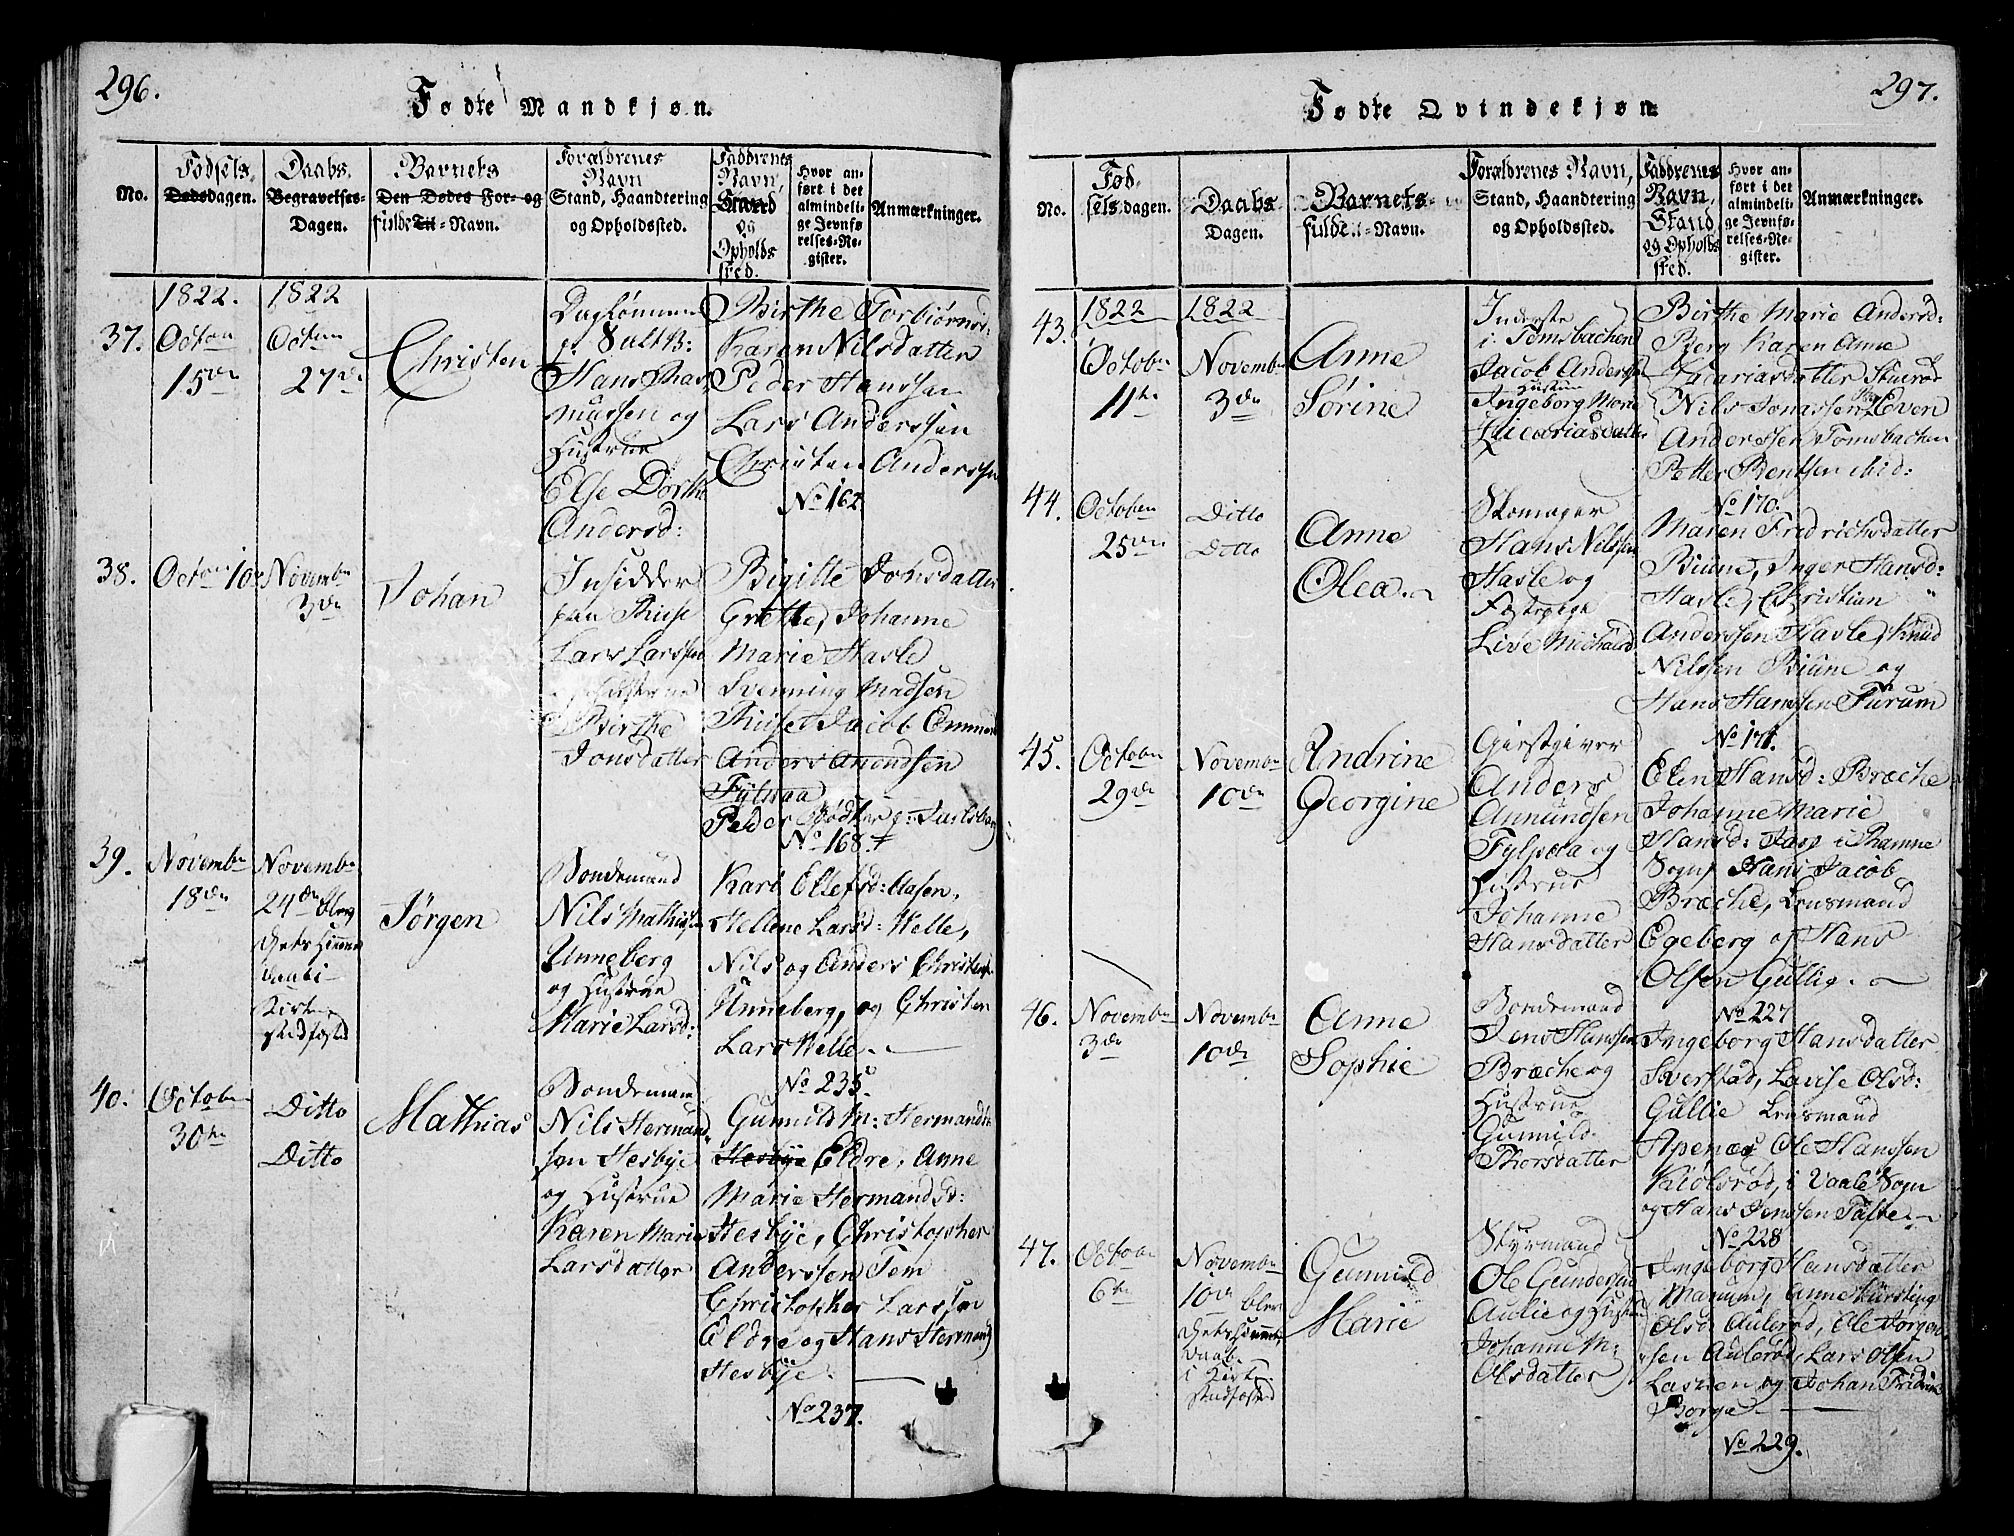 296.
Fødte Mandkjøn.
No.
Fødsels
Dødsdagen.
Daabs
Begravelses-
Dagen.
Barnets
Den Dødes For- og
fulde Til-Navn.
Forældrenes
Navn
Stand, Haandtering
og Opholdssted.
Faddrenes
Navn,
Stand
og
Opholds
sted.
Hvor an-
ført i det
almindeli-
ge Jevnfø-
relses-Re-
gister.
Anmærkninger.
37.
1822.
Octon
15de
1822
Octon
27de
Christen
Hans Ras
mussen og
Hustrue
Else Dorthe
Andersd:
Birthe Torbiørnsd:
Karen Nilsdatter
Peder Hanssen
Lars Anderssen
Christen Anderssen
No 162
38.
Novembr
3de
Johan
Insidder
Lars Larssen
Hustrue
Birthe
Jonsdatter
Bigitte Jonsdatter
Grette, Johanne
Marie Hasle
Svenning Madsen
Jacob
Anders Amundsen
Fylpaa
Peder
No 168.
39.
Novembr
18de
Novembr
24de blev
Jørgen
Bondemand
Nils Mathissen
Unneberg
og Hustrue
Marie Larsd:
Kari Ellefsd: Aasen,
Hellene Larsd: Helle,
Nils og Anders Christens
Unneberg, og Christen
Lars Helle.
No 235
40.
Octobr
30te
Ditto
Ditto
Mathias
Bondemand
Nils Hermand
sen Hesbye
og Hustrue
Karen Marie
Larsdatter
Gunnild M: Hermandsd:
Hesbye Eldre, Anne
Marie Hermandsd:
Hesbye, Christopher
Anderssen Tem
Christopher Larssen
Eldre og Hans Hermands
Hesbye.
No 237.
297.
Fødte Qvindekjøn
No.
Fød-
selsdagen.
Daabs
Dagen.
Barnets
fulde Til-Navn.
Forældrenes Navn,
Stand, Haandtering
og Opholdssted.
Faddrenes
Navn,
Stand
og Opholds
sted.
Hvor an-
ført i det
almindeli-
ge Jevnfø-
relses-Re-
gister.
Anmærkninger.
43.
1822
Octobr
11te
1822
Novembr
3de
Anne
Sørine
Inderste
i Tomsbachen
Jacob Anderssen
Hustrue
Ingeborg Marie
Zacariasdatter
Birthe Marie Andersd:
Berg Karen Anne
Zacariasdatter
Nils Jonassen Even
Anderssen Tomsbachen
Petter Bentsen ibid:
No 170.
44.
Octobr
25de
Ditto
Ditto
Anne
Olea.
Skomager
Hans Nilssen
Hasle og
Live Michelsd
Maren Fredrichsdatter
Inger Hansd:
Hasle, Christian
Anderssen Hasle, Knud
Nilssen og
Hans Hanssen Furum
No 171.
45.
Octobr
29de
Novembr
10de
Andrine
Georgine
Giestgiver
Anders
Amundsen
Fylpaa og
Hustrue
Johanne
Hansdatter
Elen Hansd: Bræche
Johanne Marie
Hansd: i Ramne
Sogn, Hans Jacob
Bræche, Lensmand
Egeberg og Hans
Olsen Gullie.
No 227
46.
Novembr
3de
Novembr
10de
Anne
Sophie
Bondemand
Jens Hanssen
Bræche og
Hustrue
Gunnild
Thorsdatter
Ingeborg Hansdatter
Sverstad, Lavise Olsd:
Gullie Lensmand
Apenæs Ole Hanssen
Kiølsrød, i Vaale Sogn
og Hans Jenssen Tufte.
No 228
47.
Octobr
6te
Novembr
10de blev
Gunnild
Marie
Styrmand
Ole Gunderssen
Aulie og Hustrue
Johanne M:
Olsdatter
Ingeborg Hansdatter
Manum, Anne Kirsting
Olsd: Aulerød, Ole Jørgen
sen Aulerød, Lars Olsen
og Johan Fridrich
Borge
No 229.